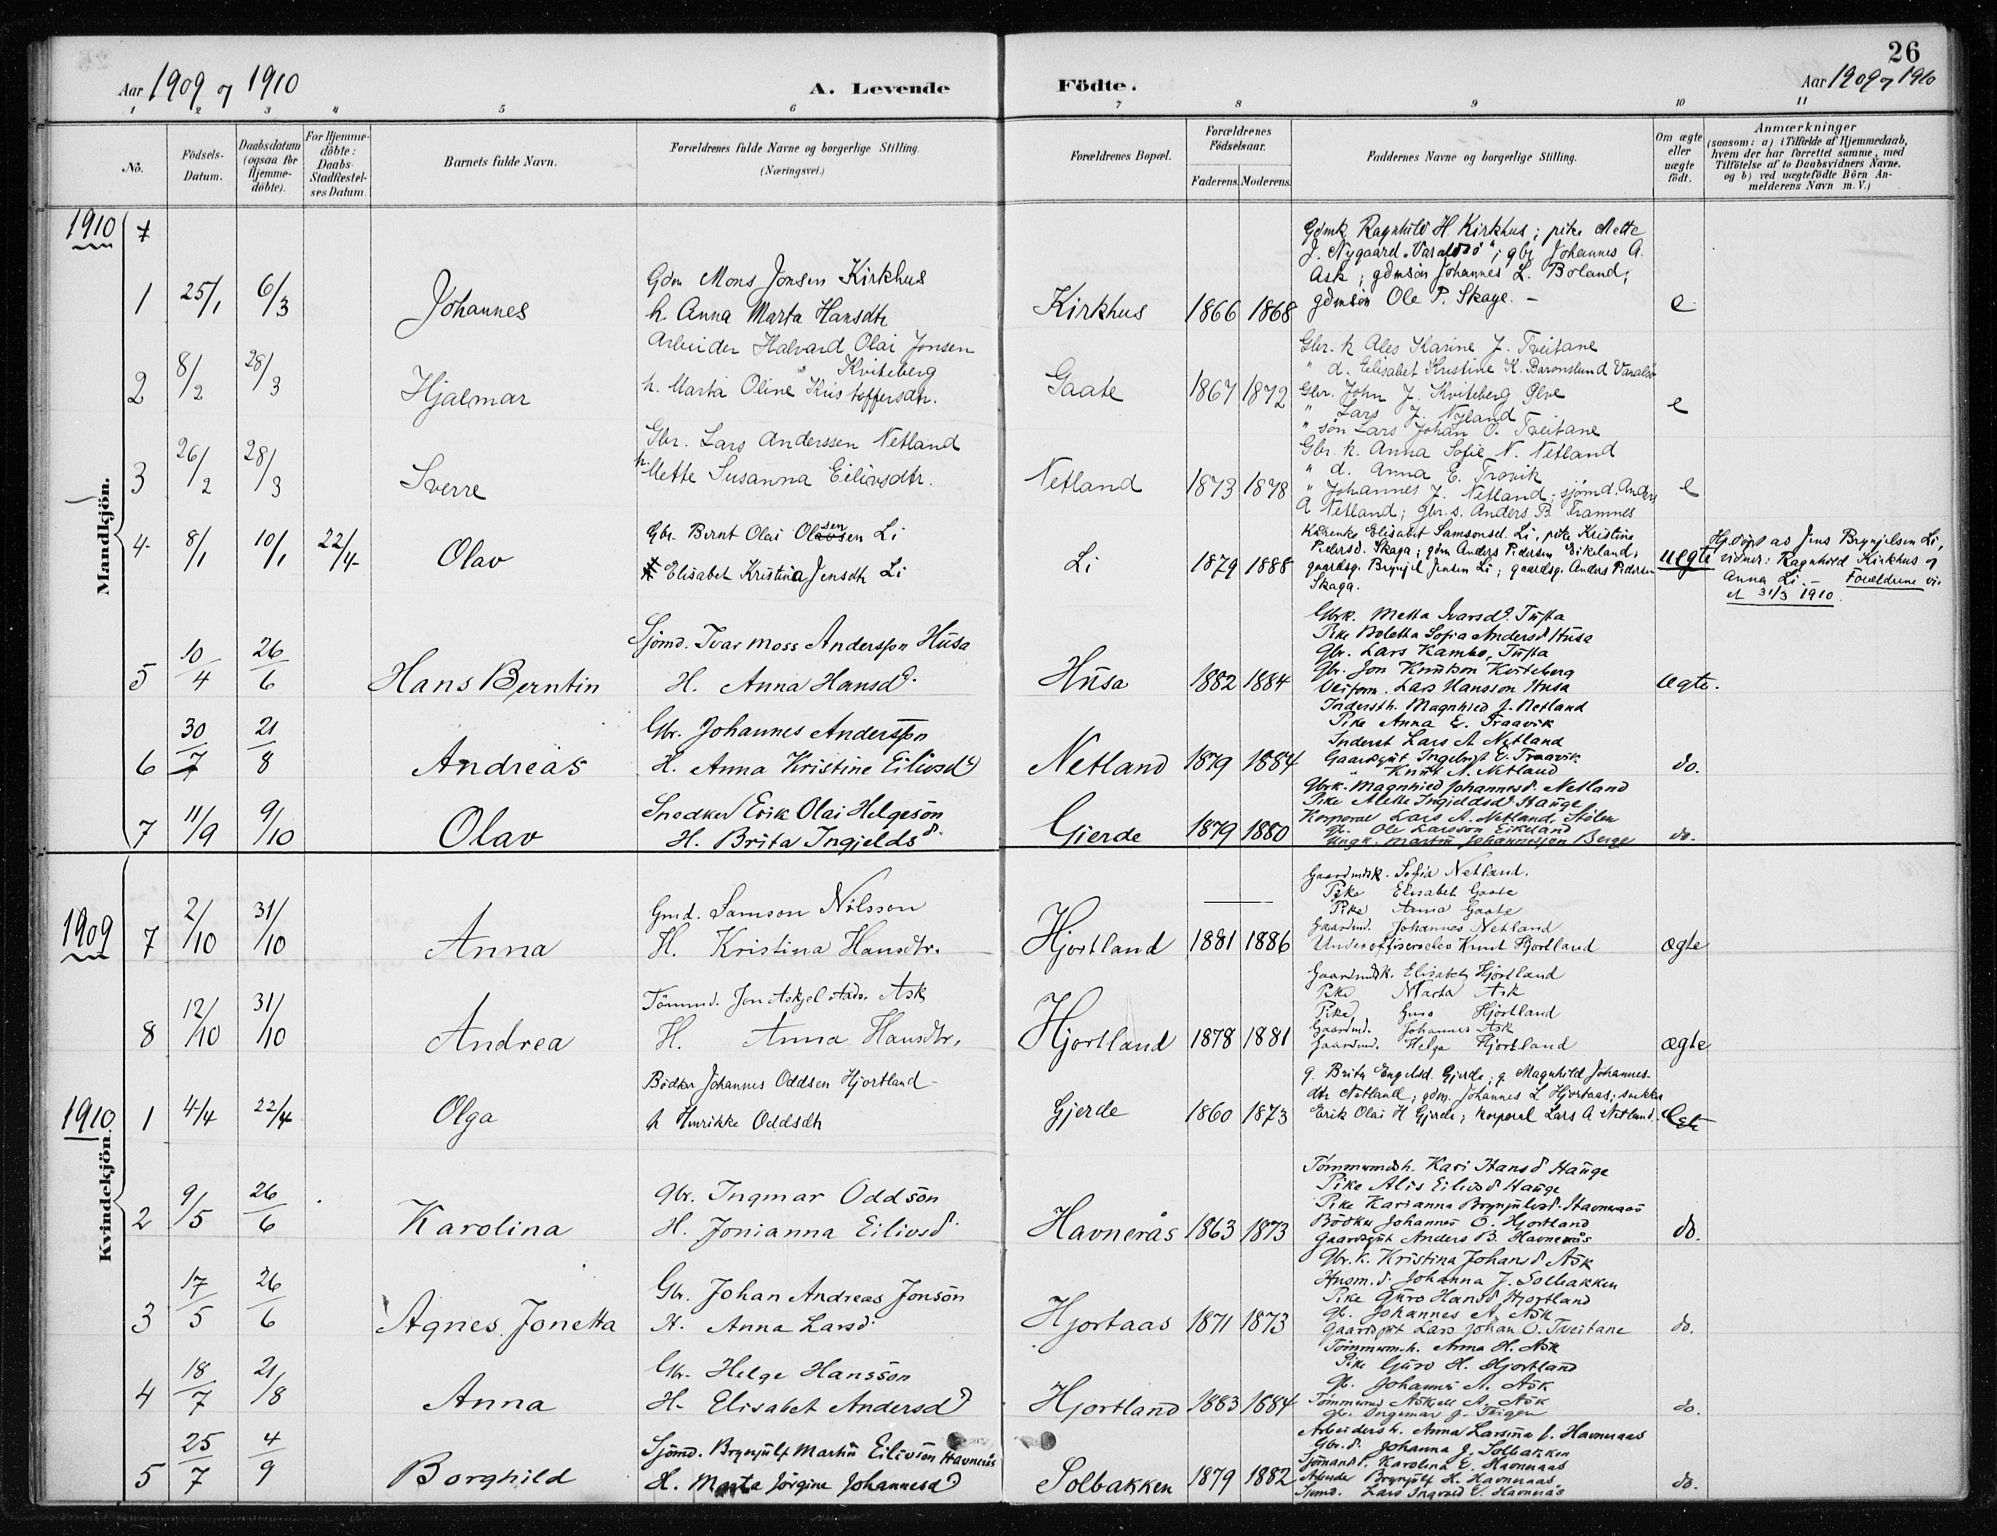 26
Aar 1909 og 1910
A. Levende
Födte.
Aar 1909 og 1910
1 2 3 4 5 6 7 8 9 10 11
No.
Födsels-Datum.
Daabsdatum (ogsaa for Hjemme-döbte).
For Hjemme-döbte: Daabs-Stadfæstelses Datum.
Barnets fulde Navn.
Forældrenes fulde Navne og borgerlige Stilling. (Næringsvei.)
Forældrenes Bopæl.
Forældrenes Födselsaar.
Faderens. Moderens.
Faddernes Navne og borgerlige Stilling.
Om ægte eller uægte födt.
Anmærkninger
(saasom: a) i Tilfælde af Hjemmedaab, hvem der har forrettet samme, med Tilföielse af to Daabsvidners Navne, og b) ved uægtefödte Börn Anmelderens Navn m. V.)
Mandkjön.
1910
1 25/1 6/3 Johannes
Gdm Mons Jonsen Kirkhus
h. Anna Marta Hansdtr
Kirkhus 1866 1868
Gdmk Ragnhild H. Kirkhus; pike Mette
J. Nygaard "Varaldsö"; gbr Johannes A.
Ask; gdmsön Johannes L. Boland;
gdmsön Ole P. Skage. –
e
2 8/2 28/3 Hjalmar
Arbeider Halvard Olai Jonsen
Kviteberg
h. Marta Oline Kristoffersdtr.
Gaate 1867 1872
Gbr. k Ales Karine J. Tveitane
" d. Elisabet Kristine K. Baronslund Varaldsö
Gbr. John J. Kviteberg Ølve
" Lars J. Nyland
" sön Lars Johan O. Tveitane
e
3 26/2 28/3 Sverre
Gbr. Lars Anderssen Netland
h Mette Susanna Eilivsdtr.
Netland 1873 1878
Gbr. k. Anna Sofie N. Netland
" d. Anna E. Trovik
" Johannes J. Netland; sjömd. Anders
A Netland; Gbr. s. Anders B. Framnes
e
4 8/1 10/1 22/4 Olav
Gbr. Bernt Olai Olsen Li
Elisabet Kristina Jensdtr Li
Li 1879 1888
Kaarenke Elisabet Samsonsd. Li, pike Kristine
Pedersd. Skaga; gdm Anders Pedersen Eikeland;
gaardsg. Brynjel Jensen Li; gaardsg. Anders Pedersen
Skaga.
uegte
Hj. döpt av Jens Brynjelsen Li,
vidner: Ragnhild Kirkhus og
Anna Li. – Forældrene vi-
et 31/3 1910.
5 10/4 26/6 Hans Berntin
Sjömd. Ivar Moss Andersson Husa
H. Anna Hansd.
Husa 1882 1884
Gbrk. Metta Ivarsd. Tufta
Pike Boletta Sofia Andersd Husa
Gbr. Lars Kambo, Tufta
Gbr. Jon Knutson Kviteberg
Veiform. Lars Hansson Husa
ægte.
6 30/7 21/8 Andreas
Gbr. Johannes Andersson
H. Anna Kristine Eilivsd
Netland 1879 1884
Indersth. Magnhild J. Netland
Pike Anna E. Traavik
Inderst Lars A Netland
Gaardsgut Ingebrigt E. Traavik
" Knut A. Netland
do.
7 11/9 9/10 Olav
Snedker Erik Olai Helgesön
H. Brita Ingjelds d.
Gjerde 1879 1880
Gbrk. Magnhild Johannesd. Netland
Pike Alette Ingjeldsd Hauge
Korporal Lars A. Netland, Stölen
Gbr. Ole Larsson Eikeland
Ungk. Martin Johannessen Berge
do.
Kvindekjön.
1909
7 2/10 31/10 Anna
Gmd. Samson Nilsson
H. Kristina Hansdtr.
Hjortland 1881 1886
Gaardmdk. Sofia Netland.
Pike Elisabet Gaate
Pike Anna Gaate
Gaardmd. Johannes Netland
Underoffiserselev Knut Hjortland
ægte
8 12/10 31/10 Andrea
Tömmd. Jon Askjel Ask
H. Anna Hansdtr.
Hjortland 1878 1881
Gaardmdk. Elisabet Hjortland
Pike Marta Ask
Pike Guro Hjortland
Gaardmd. Johannes Ask
Gaardmd. Helge Hjortland
ægte
1910
1 4/4 22/4 Olga
Bödker Johannes Oddsen Hjortland
h Henrikke Oddsdtr
Gjerde 1860 1873
g. Brita Engelsd. Gjerde; g Magnhild Johannes-
dtr Netland; gdm. Johannes L Hjortaas; snekker
Erik Olai H Gjerde; Korporal Lars A Netland.
Egte
2 9/5 26/6 Karolina
Gbr. Ingmar Oddsön
H. Jonianna Eilivsd.
Havnerås 1863 1873
Tömmermdsh. Kari Hansd Hauge
Pike Alis Eilivsd Hauge
Pike Karianna Brynjulvsd. Havneraas
Bödker Johannes O. Hjortland
Gaardsgut Anders B. Havnerås
do.
3 17/5 26/6 Agnes Jonetta
Gbr. Johan Andreas Jonsön
H. Anna Larsd.
Hjortaas 1871 1873
Gbr. k. Kristina Johansd Ask
Husm. d. Johanna J. Solbakken
Pike Guro Hansd Hjortland
Gbr. Johannes A. Ask
Gaardsgut Lars Johan O. Tveitane
do.
4 18/7 21/8 Anna
Gbr. Helge Hansson
H. Elisabet Andersd
Hjortland 1883 1884
Tömmermh. Anna H. Ask
Pike Guro H. Hjortland
Gbr. Johannes A. Ask
Tömmermd Askjell A. Ask
Gbr. Ingemar J. Teigen
do.
5 25/7 4/9 Borghild
Sjömd. Brynjulf Martin Eilivsön Havnerås
H. Marta Jörgine Johannesd
Solbakken 1879 1882
Arbeidersh. Anna Larsina J. Havneraas
Gbr. d. Johanna J. Solbakken
Sjömand d. Karolina E. Havneraas
Arbeider Brynjulf H. Havneraas
Sjömd. Lars Ingvald E. Havnerås
do.